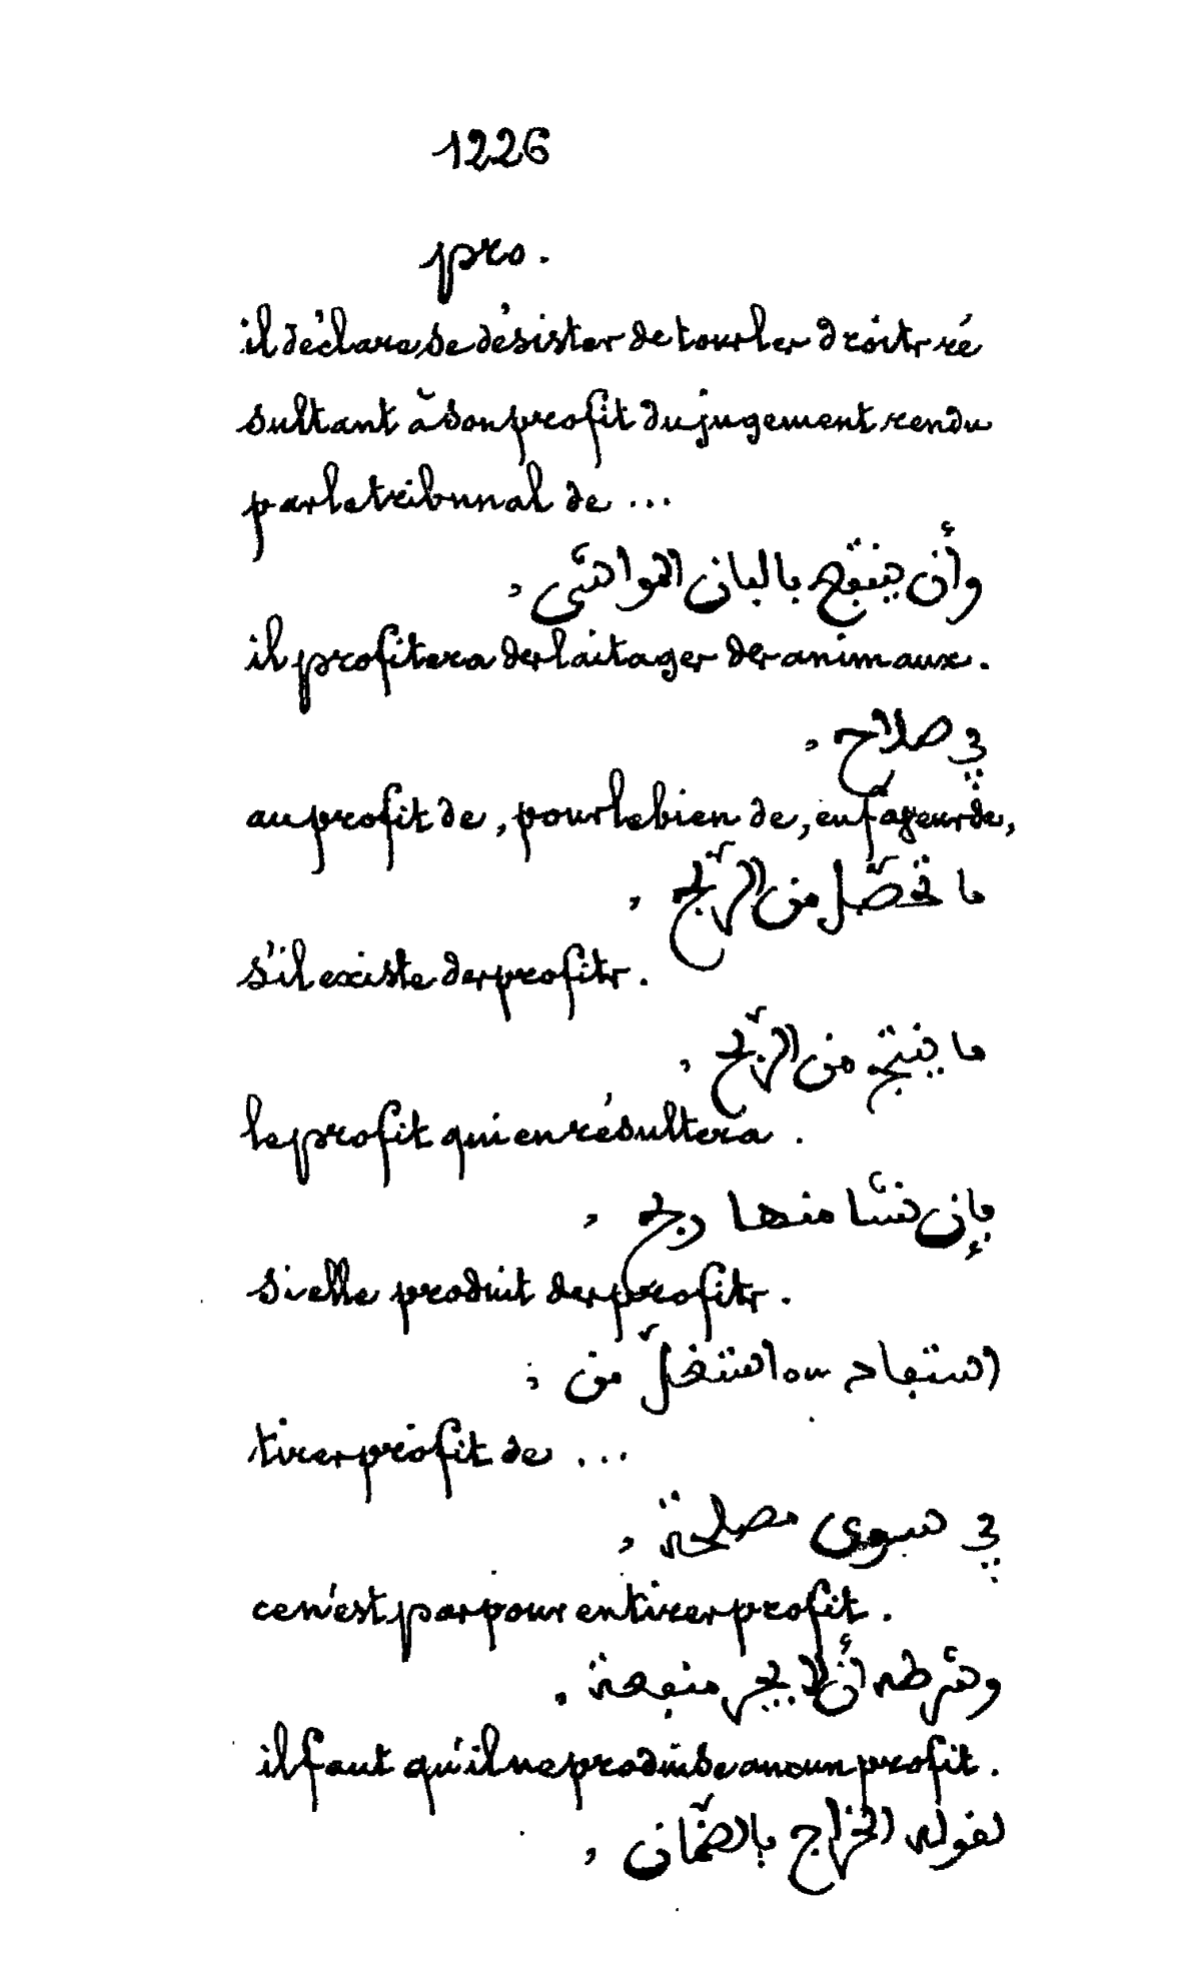 1226
pro.
il déclare se désister de tous les droits ré
sultant à son profit du jugement rendu
par le tribunal de ...
وأن ينتفع بالبان المواشي ,
il profitera des laitages des animaux.
في صلاح ,
au profit de, pour le bien de, en faveur de,
ما تحصّل من الرّبح ,
s'il existe des profits.
ما ينتج من الرّبح ,
le profit qui en résultera.
فإن نشا منها ربح ,
si elle produit des profits.
استفاد ou استغلّ من ;
tirer profit de ...
في سوى مصلحة ,
ce n'est pas pour en tirer profit.
وشرطه أن لا يجر منفعة ,
il faut qu'il ne produise aucun profit.
لقوله الخراج بالضّمان ,